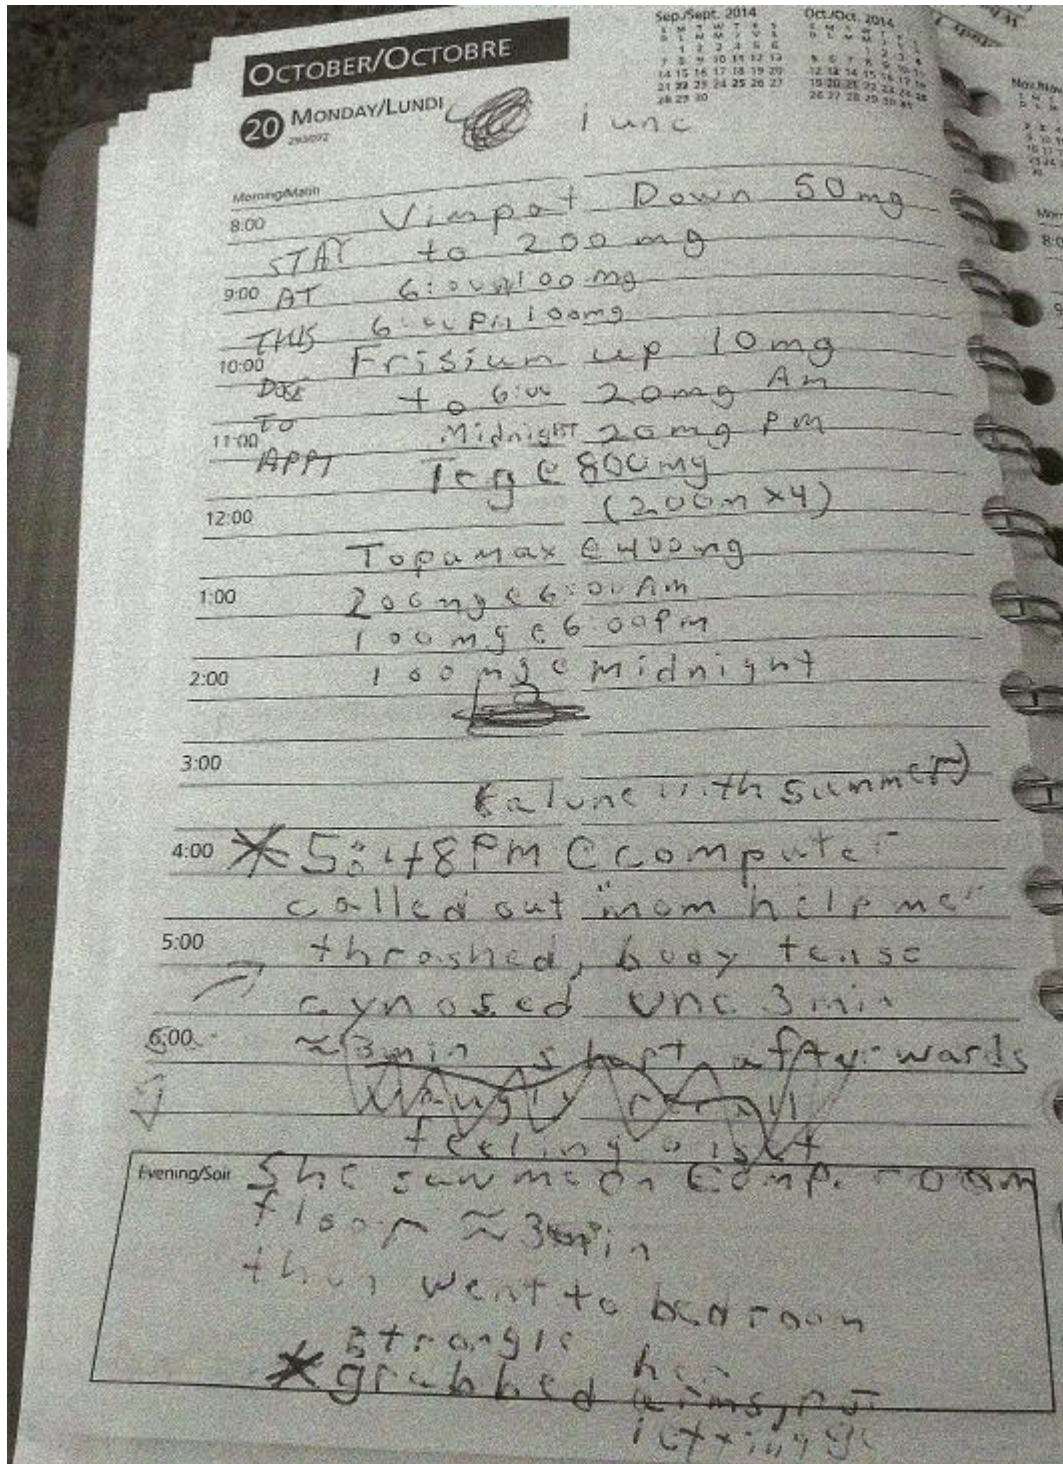 Sep./Sept. 2014 Oct./Oct. 2014
OCTOBER/OCTOBRE
20 MONDAY/LUNDI
1 unc
Morning/Matin
8:00 Vimpat Down 50mg
STAY to 200 mg
9:00 AT 100 mg
THIS 6:00 PM 100mg
10:00 Frisium up 10mg
DOSE to 6:00 20mg AM
TO Midnight 20mg PM
11:00
APPT Teg @ 800mg
12:00 (200m x4)
Topamax @ 400mg
1:00 200mg @ 6:00AM
100mg @ 6:00PM
2:00 100mg @ midnight
3:00
(alone with summer)
4:00 5:48PM @ computer
called out "mom help me"
5:00 thrashed, body tense
cynosed unc 3min
6:00 ≈3min slept afterwards
feeling
Evening/Soir She saw me on comp. room
floor ≈3min
then went to bedroom
strangle her
grabbed arms,